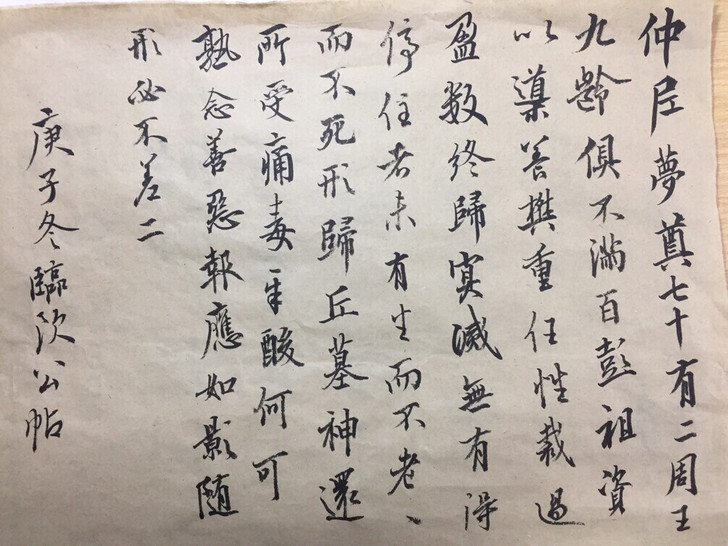 仲尼夢奠七十有二周王
九齡俱不滿百彭祖資
以導養樊重任性裁過
盈數終歸冥滅無有得
停住者未有生而不老、
而不死形歸丘墓神還
所受痛毒辛酸何可
熟念善惡報應如影隨
形必不差二
庚子冬臨欧公帖